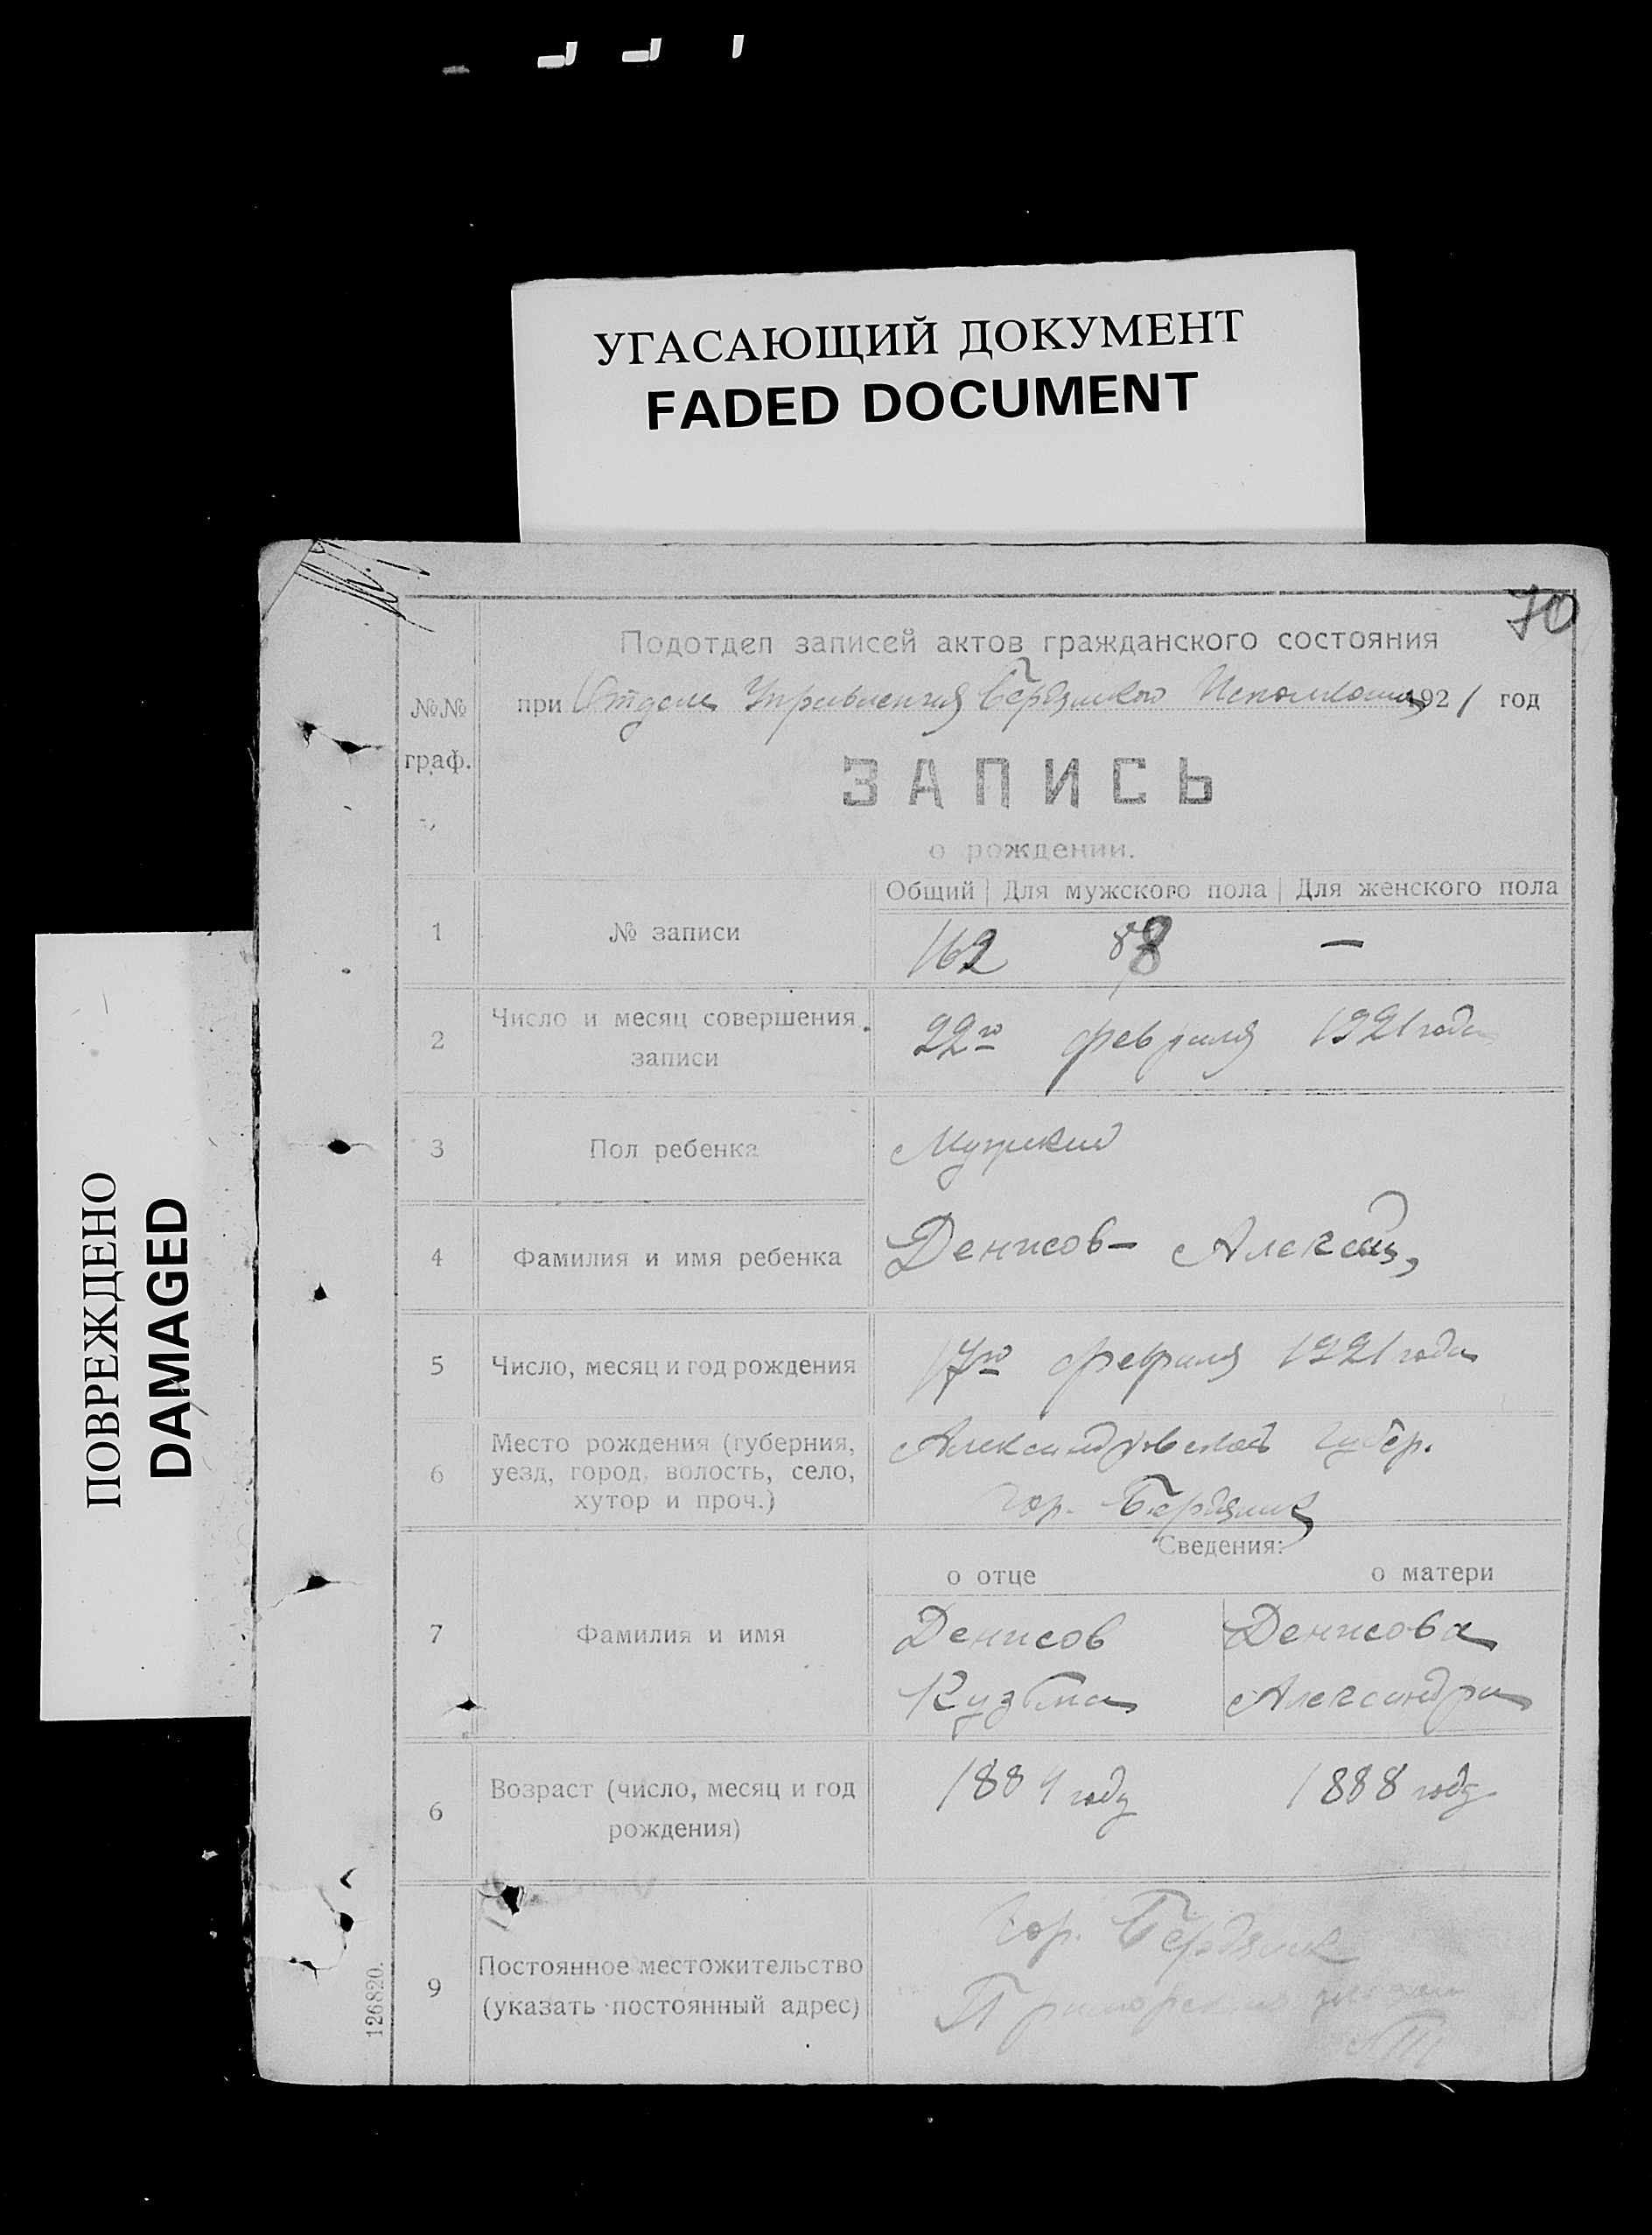 УГАСАЮЩИЙ ДОКУМЕНТ
FADED DOCUMENT
ПОВРЕЖДЕНО
DAMAGED
70
Подотдел записей актов гражданского состояния
№№ граф.
при Отделе Управления Бердянского Исполкома 1921 год
ЗАПИСЬ
о рождении.
Общий | Для мужского пола | Для женского пола
1 № записи 162 88 —
2 Число и месяц совершения записи 22го февраля 1921 года
3 Пол ребенка Мужской
4 Фамилия и имя ребенка Денисов - Алексей,
5 Число, месяц и год рождения 17го февраля 1921 года
6 Место рождения (губерния, уезд, город, волость, село, хутор и проч.) Александровской губер.
гор. Бердянск
Сведения:
о отце о матери
7 Фамилия и имя Денисов Денисова
Кузьма Александра
6 Возраст (число, месяц и год рождения) 1884 году 1888 году
9 Постоянное местожительство (указать постоянный адрес) Гор. Бердянск
126820.